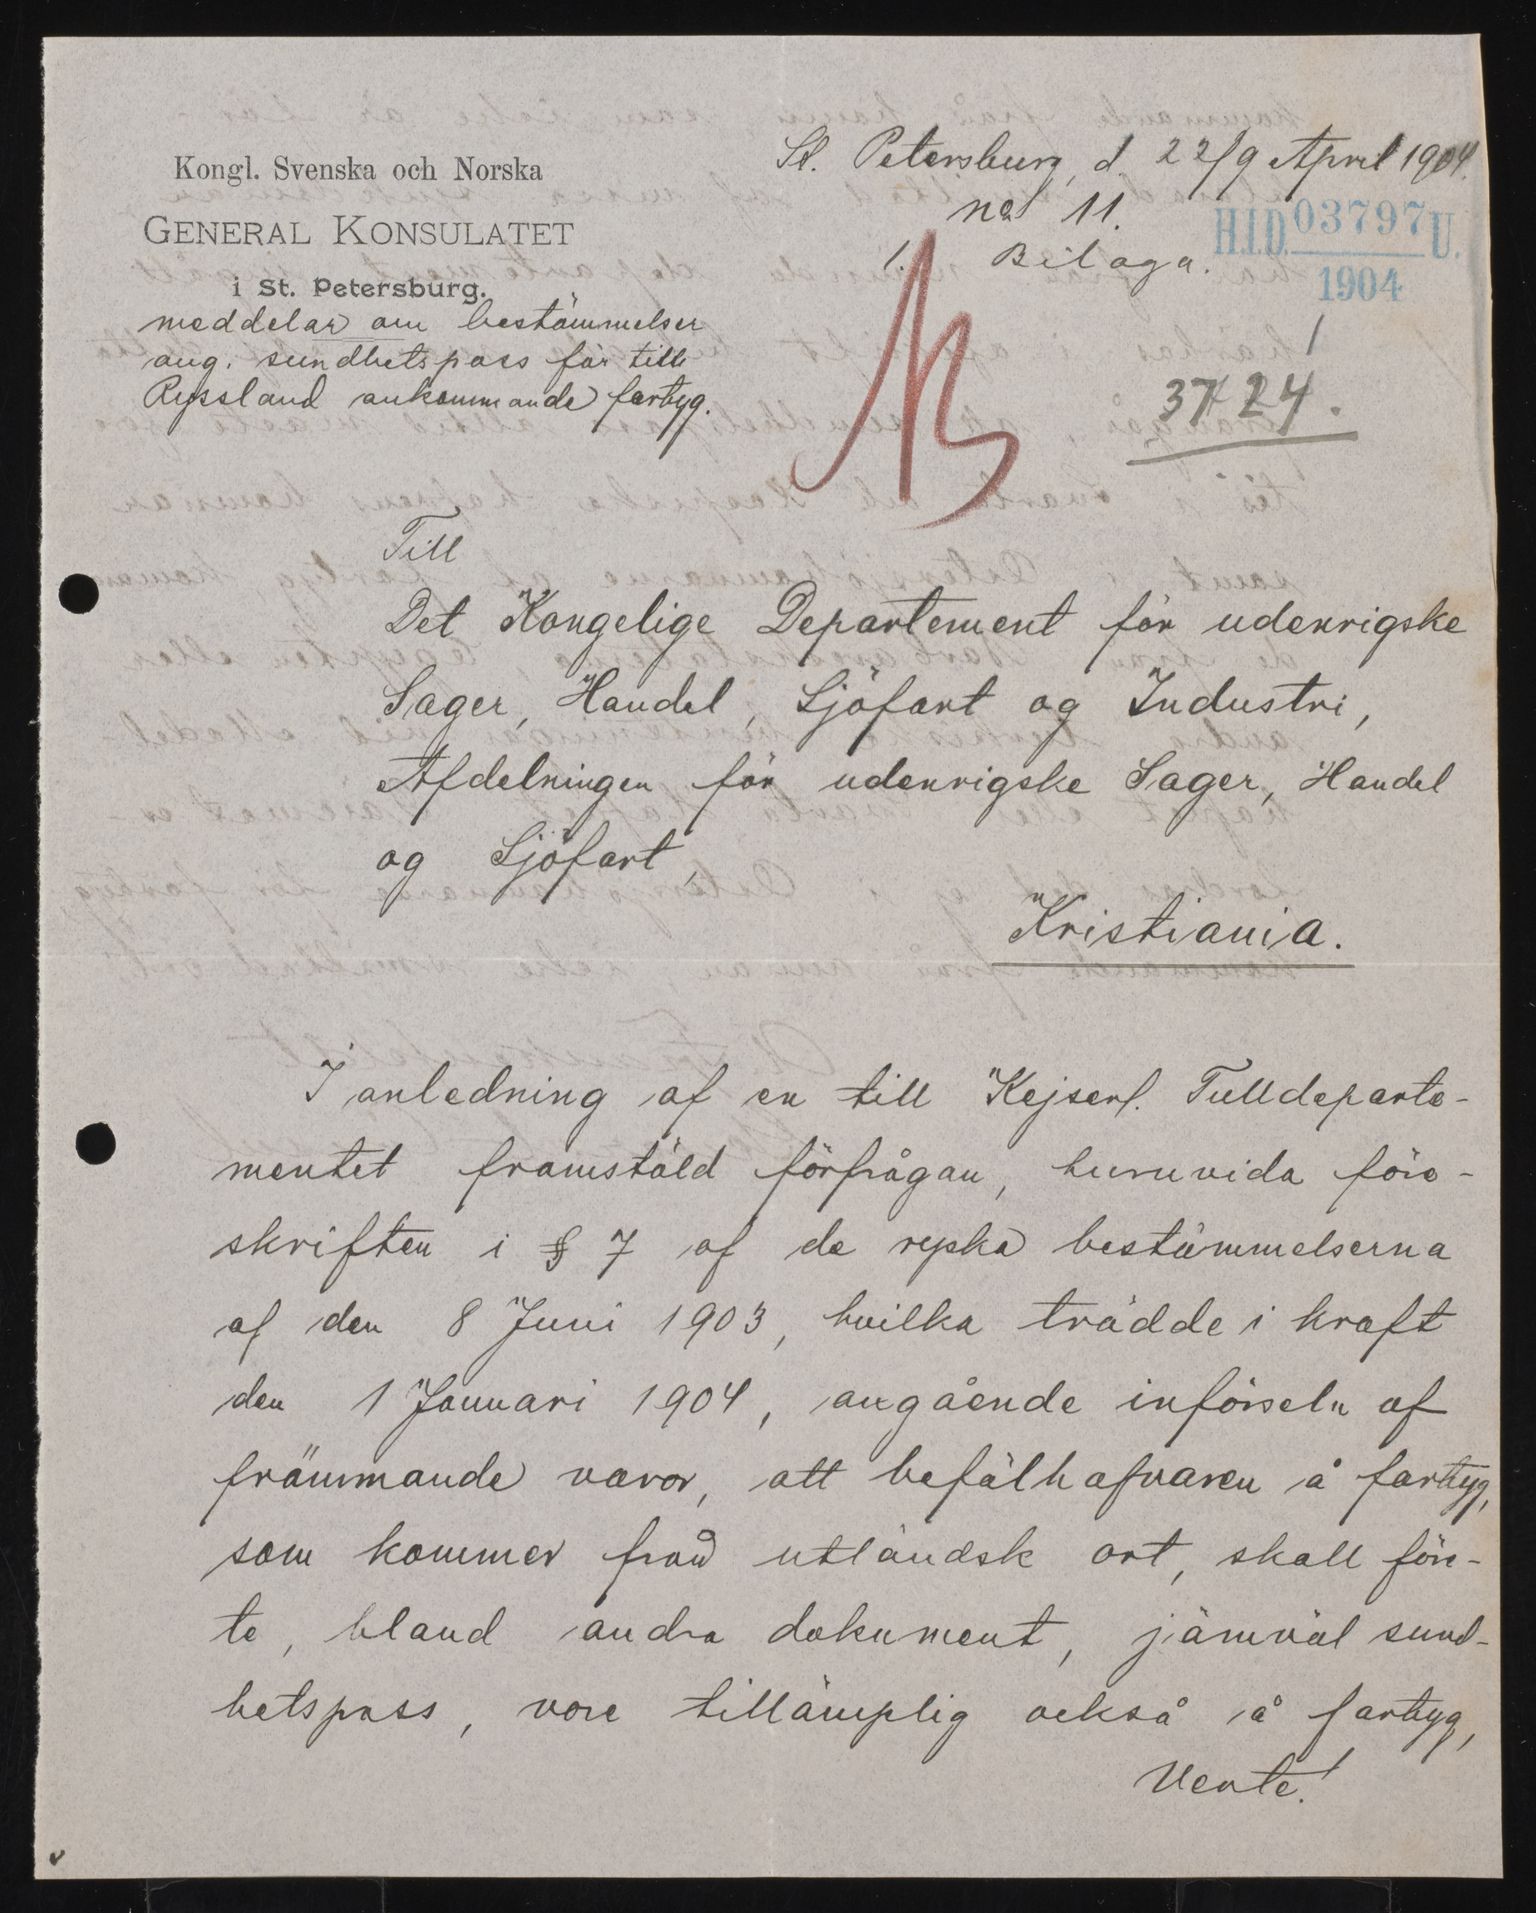 Kongl. Svenska och Norska
GENERAL KONSULATET
i St. Petersburg.
meddelar om bestämmelser
ang. sundhetspass för till
Ryssland ankommande fartyg.
St. Petersburg, d 22/9 April 1904.
No 11.
1. Bilaga.
H.I.D. 03797 U.
1904
3724.
Till
Det Kongelige Departement för udenrigske
Sager, Handel, Sjöfart og Industri,
Afdelningen för udenrigske Sager, Handel
og Sjöfart,
Kristiania.
I anledning af en till Kejserl. Tulldeparte-
mentet framstäld förfrågan, huruvida före-
skriften i § 7 af de ryska bestämmelserna
af den 8 Juni 1903, hvilka trädde i kraft
den 1 Januari 1904, angående införseln af
främmande varor, att befälhafvaren å fartyg,
som kommer från utländsk ort, skall före-
te, bland andra dokument, jämväl sund-
hetspass, vore tillämplig också å fartyg,
Vente!